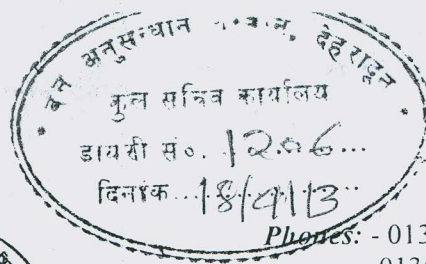 वन अनुसन्धान देहरादून
कुल सचिव कार्यालय
डायरी सं०. 1206...
दिनांक...18/4/13..
Phones: - 013